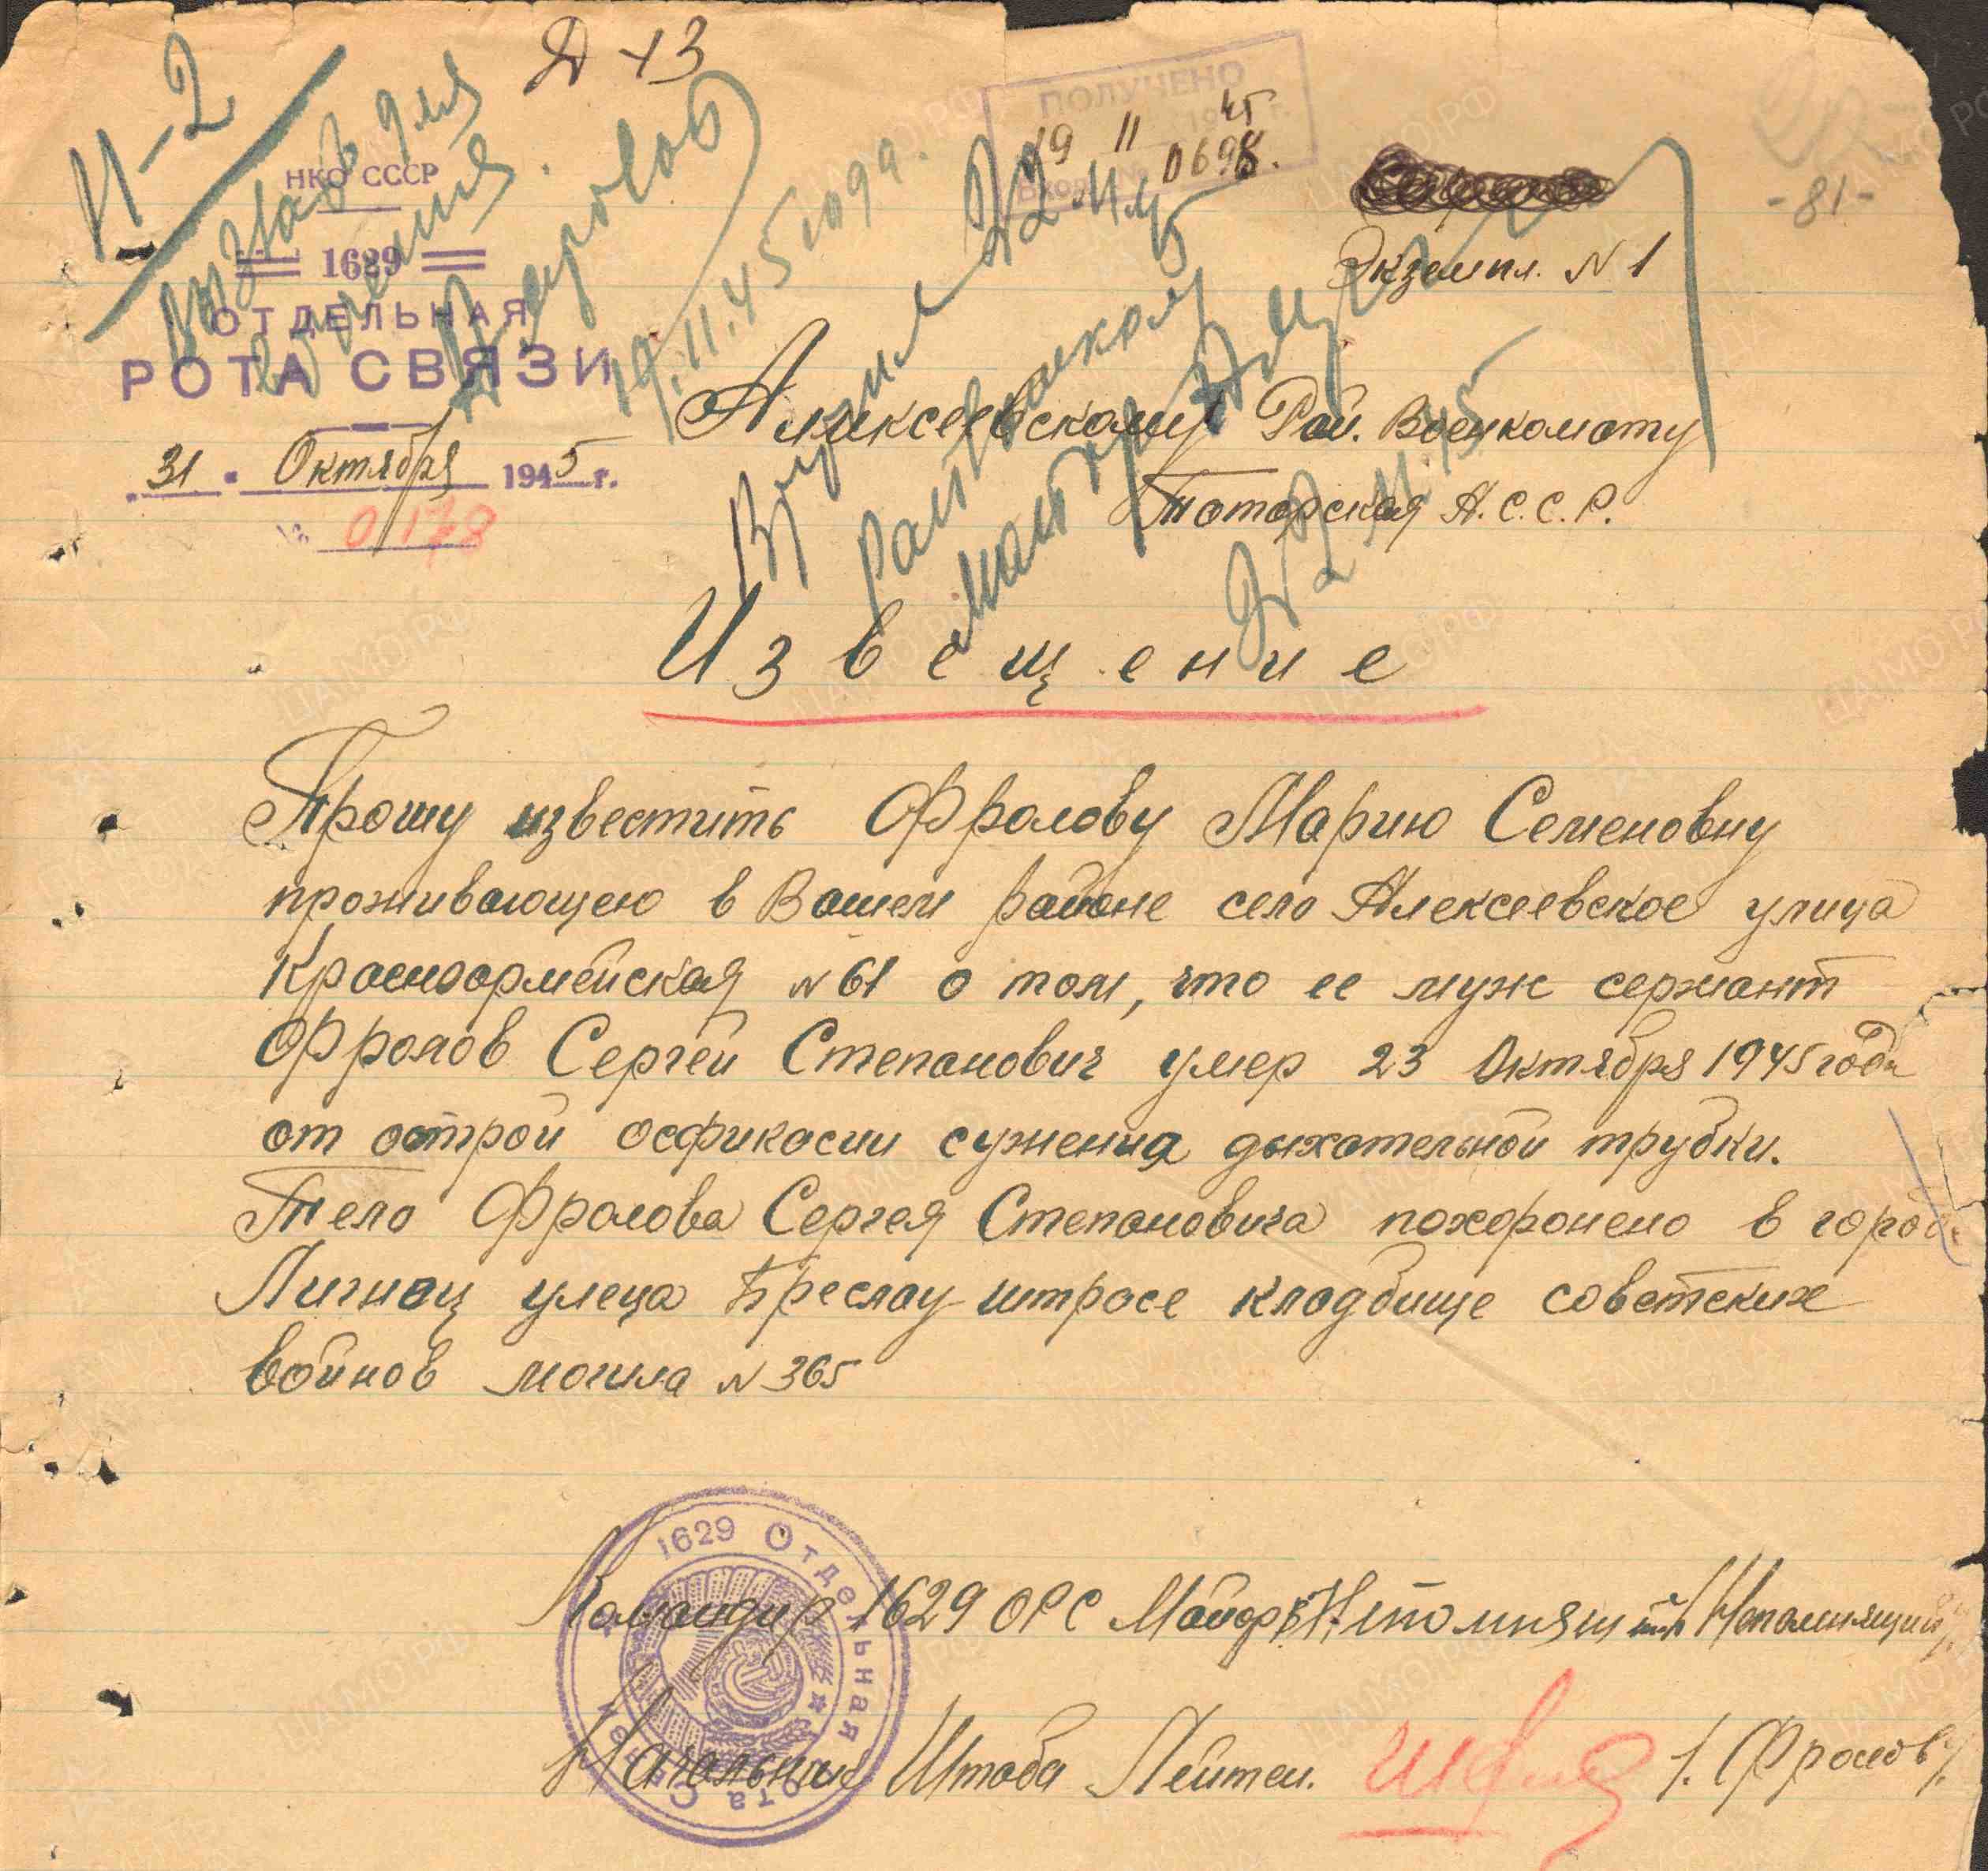 И-2
Д 43
вызвав для
вручения.
19.11.45
ПОЛУЧЕНО
19 11 45 г.
0698.
-81-
НКО СССР
1629
ОТДЕЛЬНАЯ
РОТА СВЯЗИ
31 Октября 1945 г.
№ 0178
Экземпл. N 1
Алексеевскому Рай. Военкомату
Татарская А.С.С.Р.
Вручил
22.11.45
Извещение
Прошу известить Фролову Марию Семеновну
проживающею в Вашем районе село Алексеевское улица
Красноармейская N 61 о том, что ее муж сержант
Фролов Сергей Степанович умер 23 Октября 1945 года
от острой осфикасии сужения дыхательной трубки.
Тело Фролова Сергея Степановича похоронено в город
Лигниц улеца Бреслау-штрасе кладбище советских
войнов могила N 365
1629 Отдельная Рота Связи
Командир 1629 ОРС Майор /Непомнящий/
Начальник Штаба Лейтен. /Фролов/.